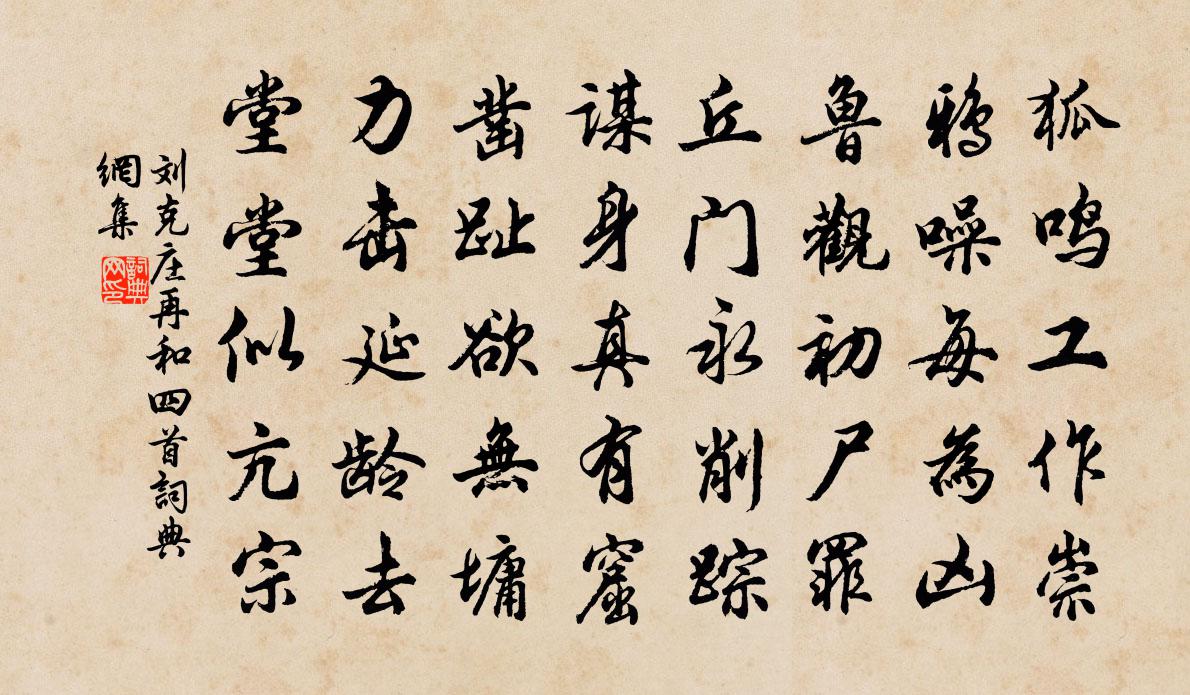 狐鸣工作祟
鸦噪每為凶
魯觀初尸罪
丘门永削踪
谋身真有窟
凿趾欲無墉
力击延龄去
堂堂似亢宗
刘克庄再和四首詞典
網集
詞典
网印